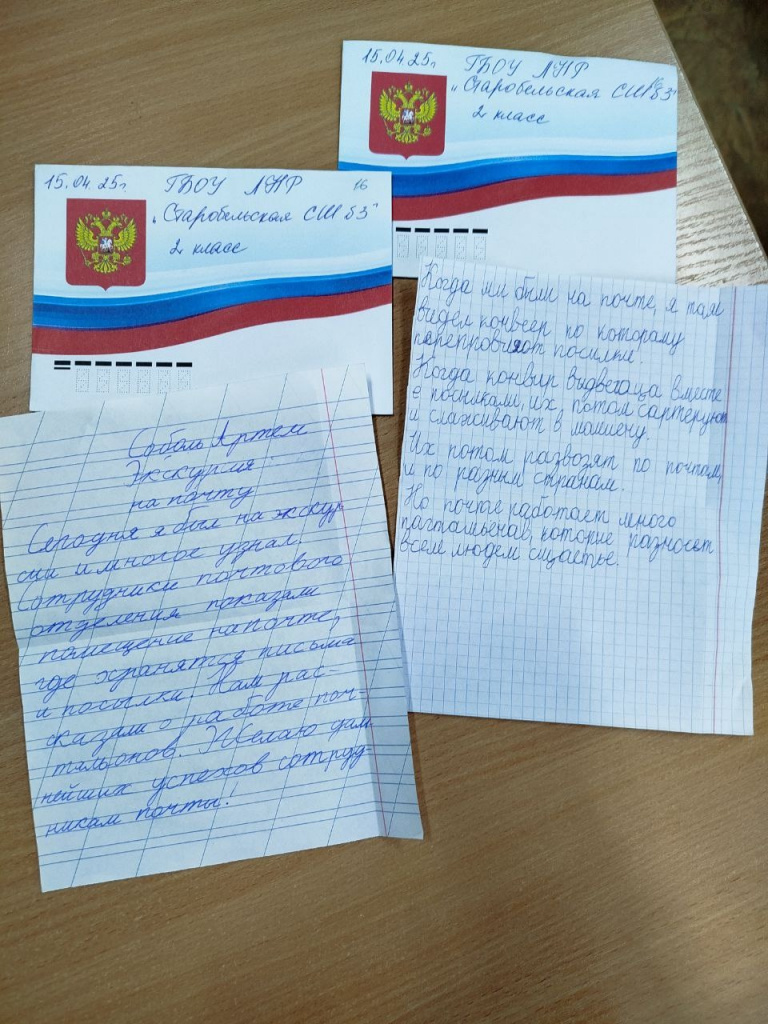 15.04.25г ГБОУ ЛНР 16
"Старобельская СШ №3"
2 класс
15.04.25г ГБОУ ЛНР 16
"Старобельская СШ №3"
2 класс
Соболь Артем
Экскурсия
на почту
Сегодня я был на экскур
сии и многое узнал.
Сотрудники почтового
отделения показали
помещение на почте,
где хранятся письма
и посылки. Нам рас-
сказали о работе поч-
тальонов. Желаю даль
нейших успехов сотруд-
никам почты!
Когда мы были на почте, я там
видел конвеер по которому
перепровляют посылки.
Когда конвир выдвегаца вместе
с посылками, их, потом сартеруют
и слаживают в машену.
Их потом развозят по почтам,
и по разным странам.
На почте работает много
пачтальенав, которые разносят
всем людем сщастье.